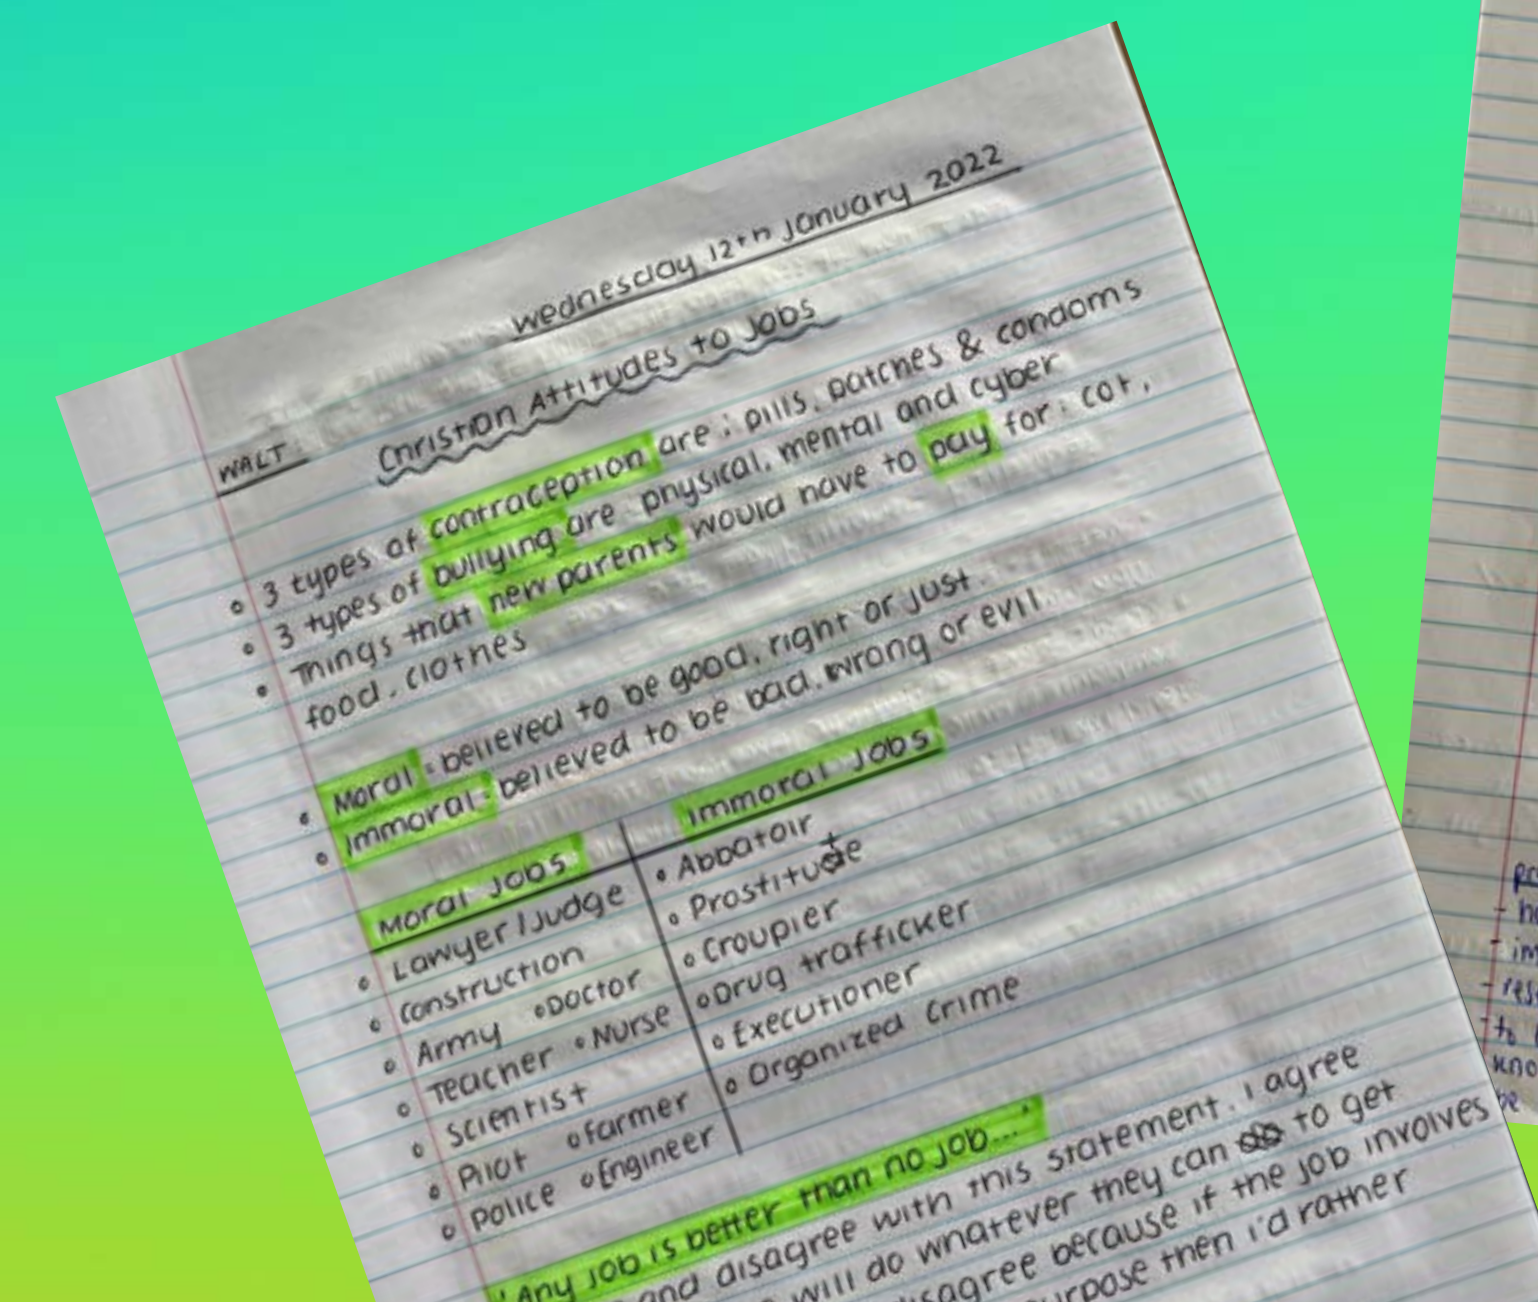 Wednesday 12th January 2022
WALT: Christian Attitudes to Jobs
• 3 types of contraception are: pills, patches & condoms
• 3 types of bullying are: physical, mental and cyber
• Things that new parents would have to pay for: cot,
food, clothes
• Moral = believed to be good, right or just.
• Immoral = believed to be bad, wrong or evil.
Moral Jobs
• Lawyer/Judge
• Construction
• Army • Doctor
• Teacher • Nurse
• Scientist
• Pilot • Farmer
• Police • Engineer
Immoral Jobs
• Abbatoir
• Prostitute
• Croupier
• Drug trafficker
• Executioner
• Organized Crime
'Any job is better than no job...'
and disagree with this statement. I agree
will do whatever they can to get
disagree because if the job involves
then i'd rather
- to